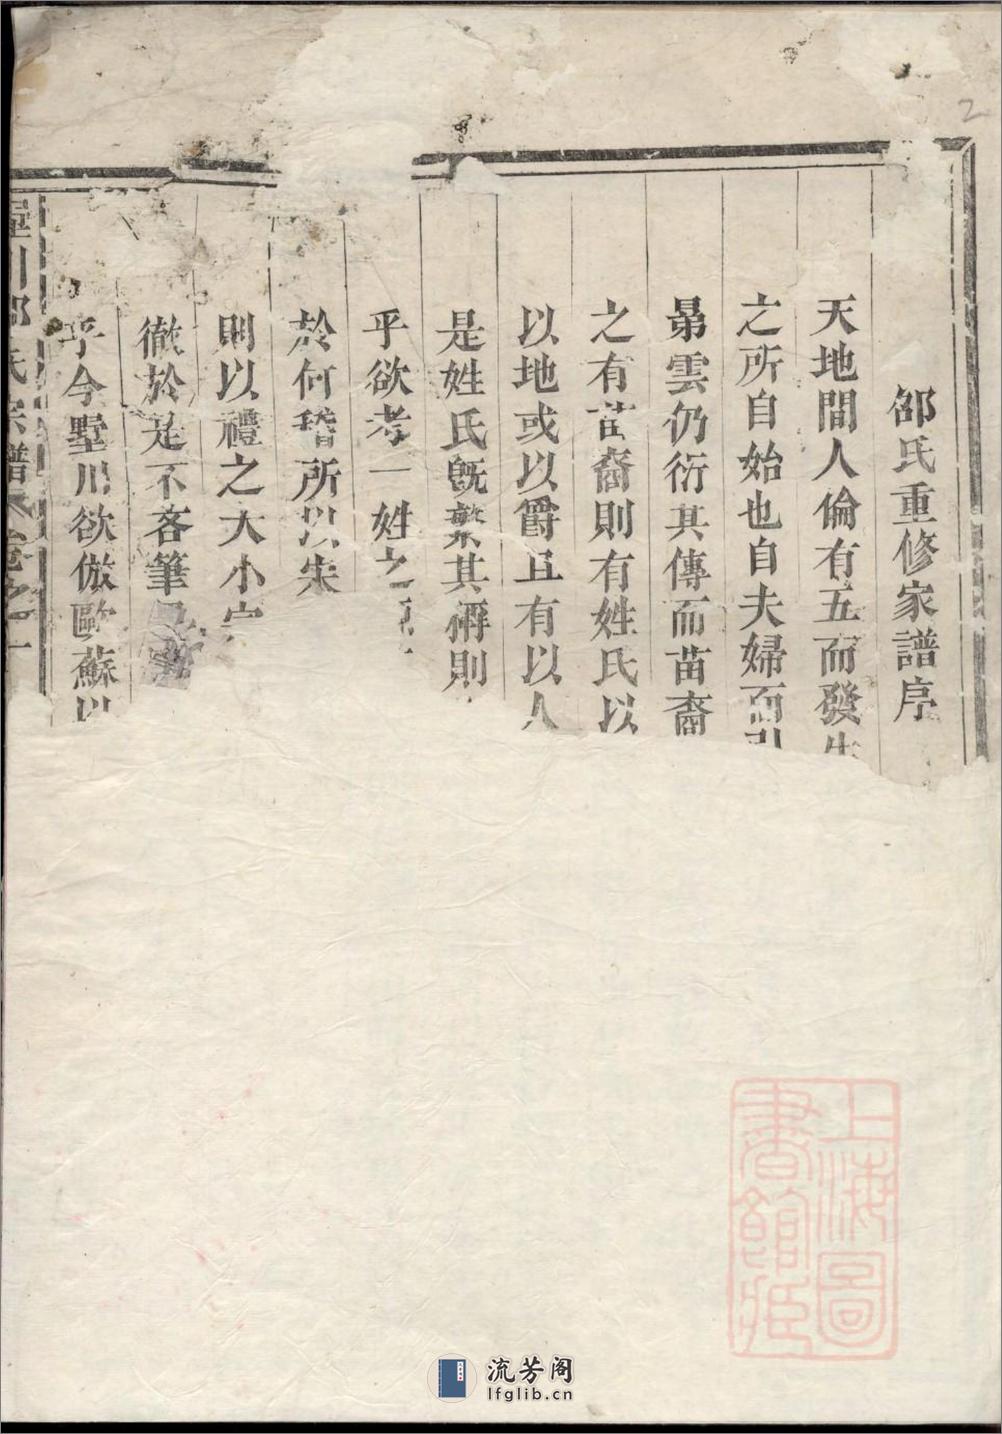 2
邵氏重修家譜序
天地間人倫有五而發生
之所自始也自夫婦而
晜雲仍衍其傳而苗裔
之有苗裔則有姓氏以
以地或以爵且有以人
是姓氏旣繁其禰則
乎欲考一姓之
於何稽所以朱
則以禮之大小宗
徹於是不吝筆
乎今墅川欲倣歐蘇以
墅川邵氏宗譜 卷之一
上海圖
書館藏
流芳阁
lfglib.cn